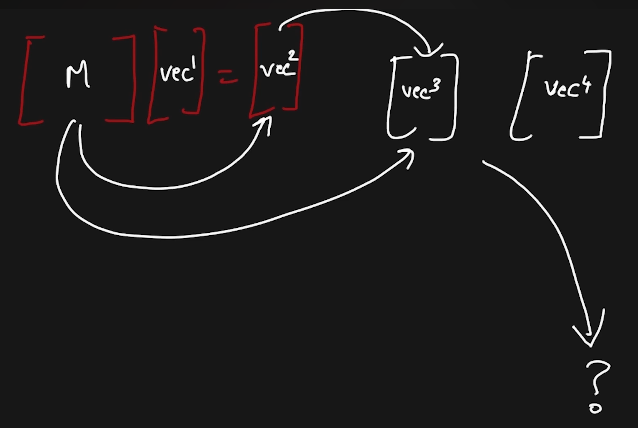 [ M ] [vec¹] = [vec²] [vec³] [vec⁴]
?